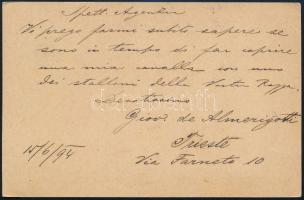 Spett. Agenzia
Vi prego farmi subito sapere se
sono in tempo di far coprire
una mia cavalla con uno
dei stalloni della Vostra Razza.
Devotissimo
Giov. de Almerigotti
Trieste
15/6/94 Via Farneto 10